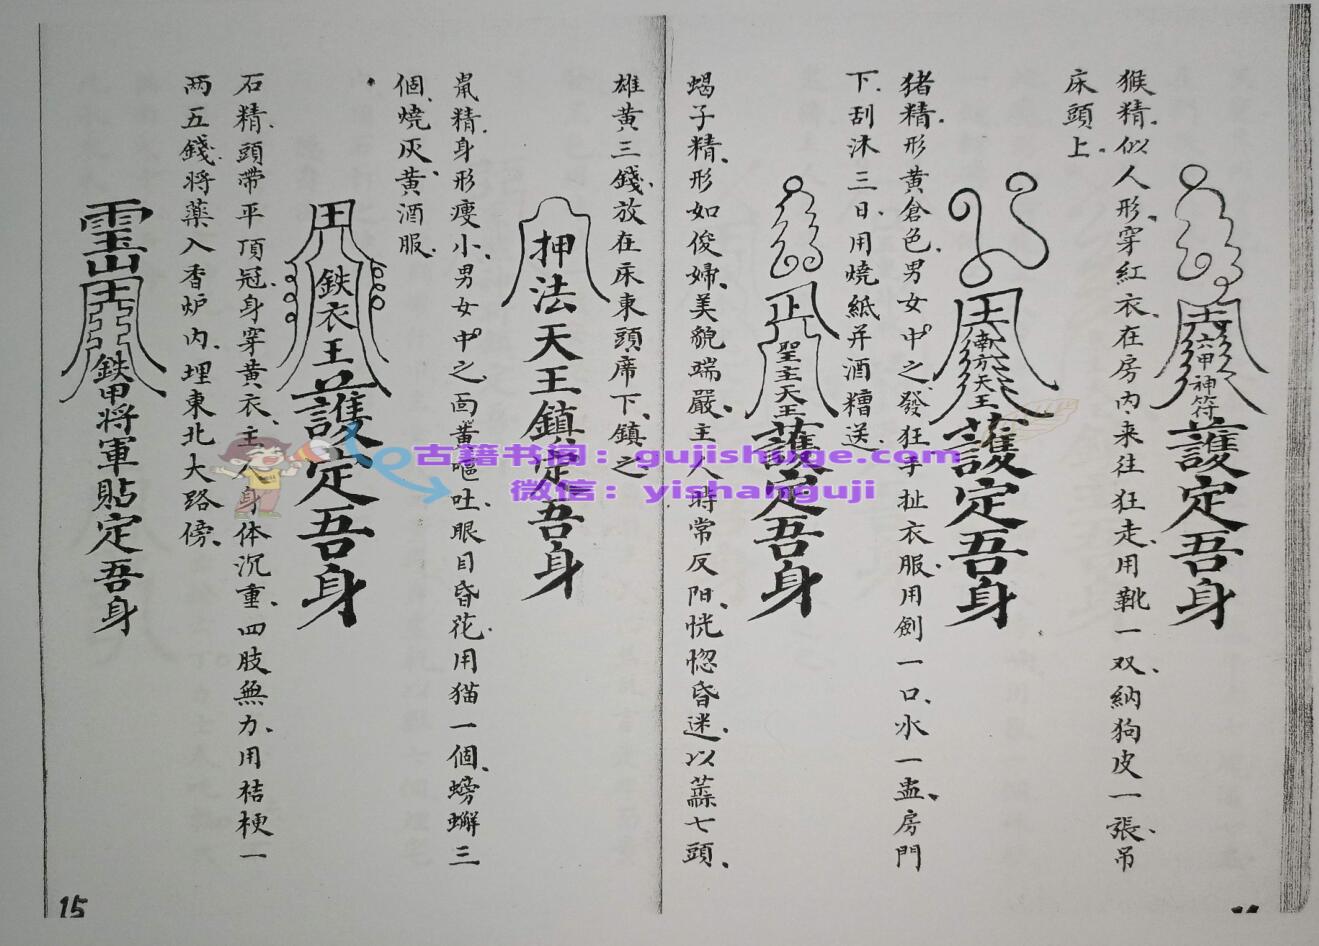 猴精、似人形、穿紅衣、在房內来往狂走、用靴一双、納狗皮一張、吊
床頭上、
六甲神符護定吾身
猪精、形黄倉色、男女中之、發狂手扯衣服、用劍一口、水一盅、房門
下、刮沐三日、用燒紙并酒糟送、
南方天王護定吾身
聖主天王護定吾身
蝎子精、形如俊婦、美貌端嚴、主人時常反阳、恍惚昏迷、以蒜七頭、
雄黄三錢、放在床東頭席下、鎮之
押法天王鎮定吾身
鼠精、身形瘦小、男女中之、面黄嘔吐、眼目昏花、用猫一個、螃蠏三
個、燒灰、黄酒服、
田鉄衣王護定吾身
石精、頭帶平頂冠、身穿黄衣、主人身体沉重、四肢無力、用桔梗一
两五錢、将薬入香炉内、埋東北大路傍、
鉄甲将軍貼定吾身
15
古籍书阁：gujishuge.com
微信：yishanguji